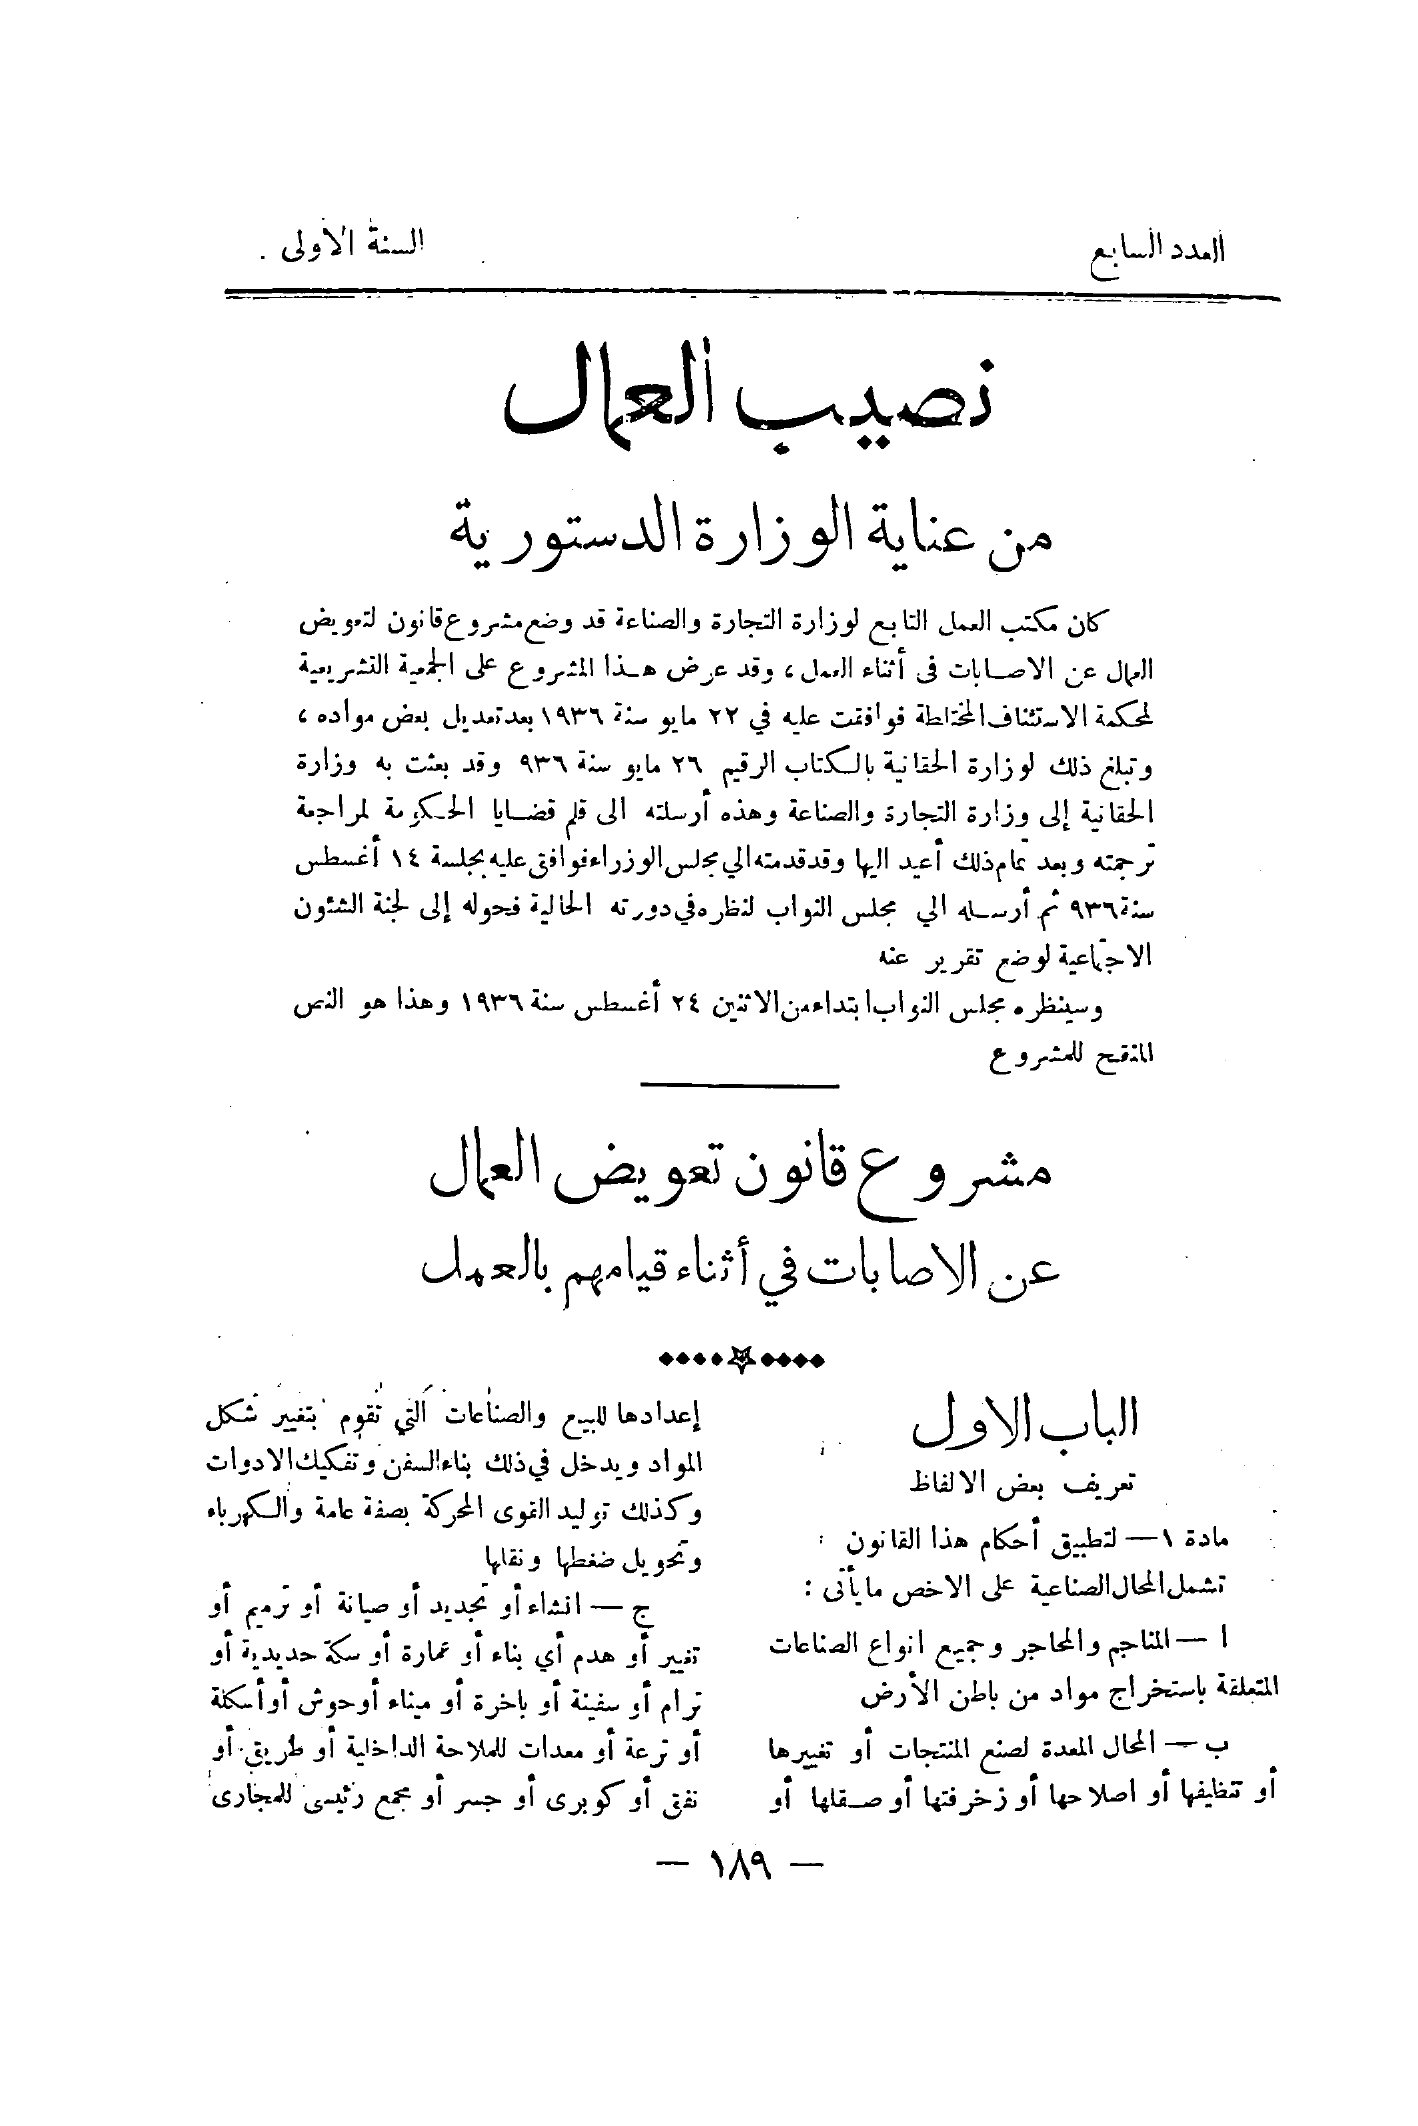 العدد السابع
السنة الأولى
نصيب العمال
من عناية الوزارة الدستورية
كان مكتب العمل التابع لوزارة التجارة والصناعة قد وضع مشروع قانون لتعويض
العمال عن الاصابات فى أثناء العمل ، وقد عرض هذا المشروع على الجمعية التشريعية
لمحكمة الاستئناف المختلطة فوافقت عليه في ٢٢ مايو سنة ١٩٣٦ بعد تعديل بعض مواده ،
وتبلغ ذلك لوزارة الحقانية بالكتاب الرقيم ٢٦ مايو سنة ٩٣٦ وقد بعثت به وزارة
الحقانية إلى وزارة التجارة والصناعة وهذه أرسلته الى قلم قضايا الحكومة لمراجعة
ترجمته وبعد تمام ذلك أعيد اليها وقد قدمته الي مجلس الوزراء فوافق عليه بجلسة ١٤ أغسطس
سنة ٩٣٦ ثم أرسله الي مجلس النواب لنظره في دورته الحالية فحوله إلى لجنة الشئون
الاجتماعية لوضع تقرير عنه
وسينظره مجلس النواب ابتداء من الاثنين ٢٤ أغسطس سنة ١٩٣٦ وهذا هو النص
المنقح للمشروع
مشروع قانون تعويض العمال
عن الاصابات في أثناء قيامهم بالعمل
الباب الاول
تعريف بعض الالفاظ
مادة ١ — لتطبيق أحكام هذا القانون :
تشمل المحال الصناعية على الاخص ما يأتى :
ا — المناجم والمحاجر وجميع انواع الصناعات
المتعلقة باستخراج مواد من باطن الأرض
ب — المحال المعدة لصنع المنتجات أو تغييرها
أو تنظيفها أو اصلاحها أو زخرفتها أو صقلها أو
إعدادها للبيع والصناعات التي تقوم بتغيير شكل
المواد ويدخل في ذلك بناء السفن وتفكيك الادوات
وكذلك توليد القوى المحركة بصفة عامة والكهرباء
وتحويل ضغطها ونقلها
ج — انشاء أو تجديد أو صيانة أو ترميم أو
تغيير أو هدم أي بناء أو عمارة أو سكة حديدية أو
ترام أو سفينة أو باخرة أو ميناء أو حوش أو أسكلة
أو ترعة أو معدات للملاحة الداخلية أو طريق أو
نفق أو كوبرى أو جسر أو مجمع رئيسى للمجارى
— ١٨٩ —